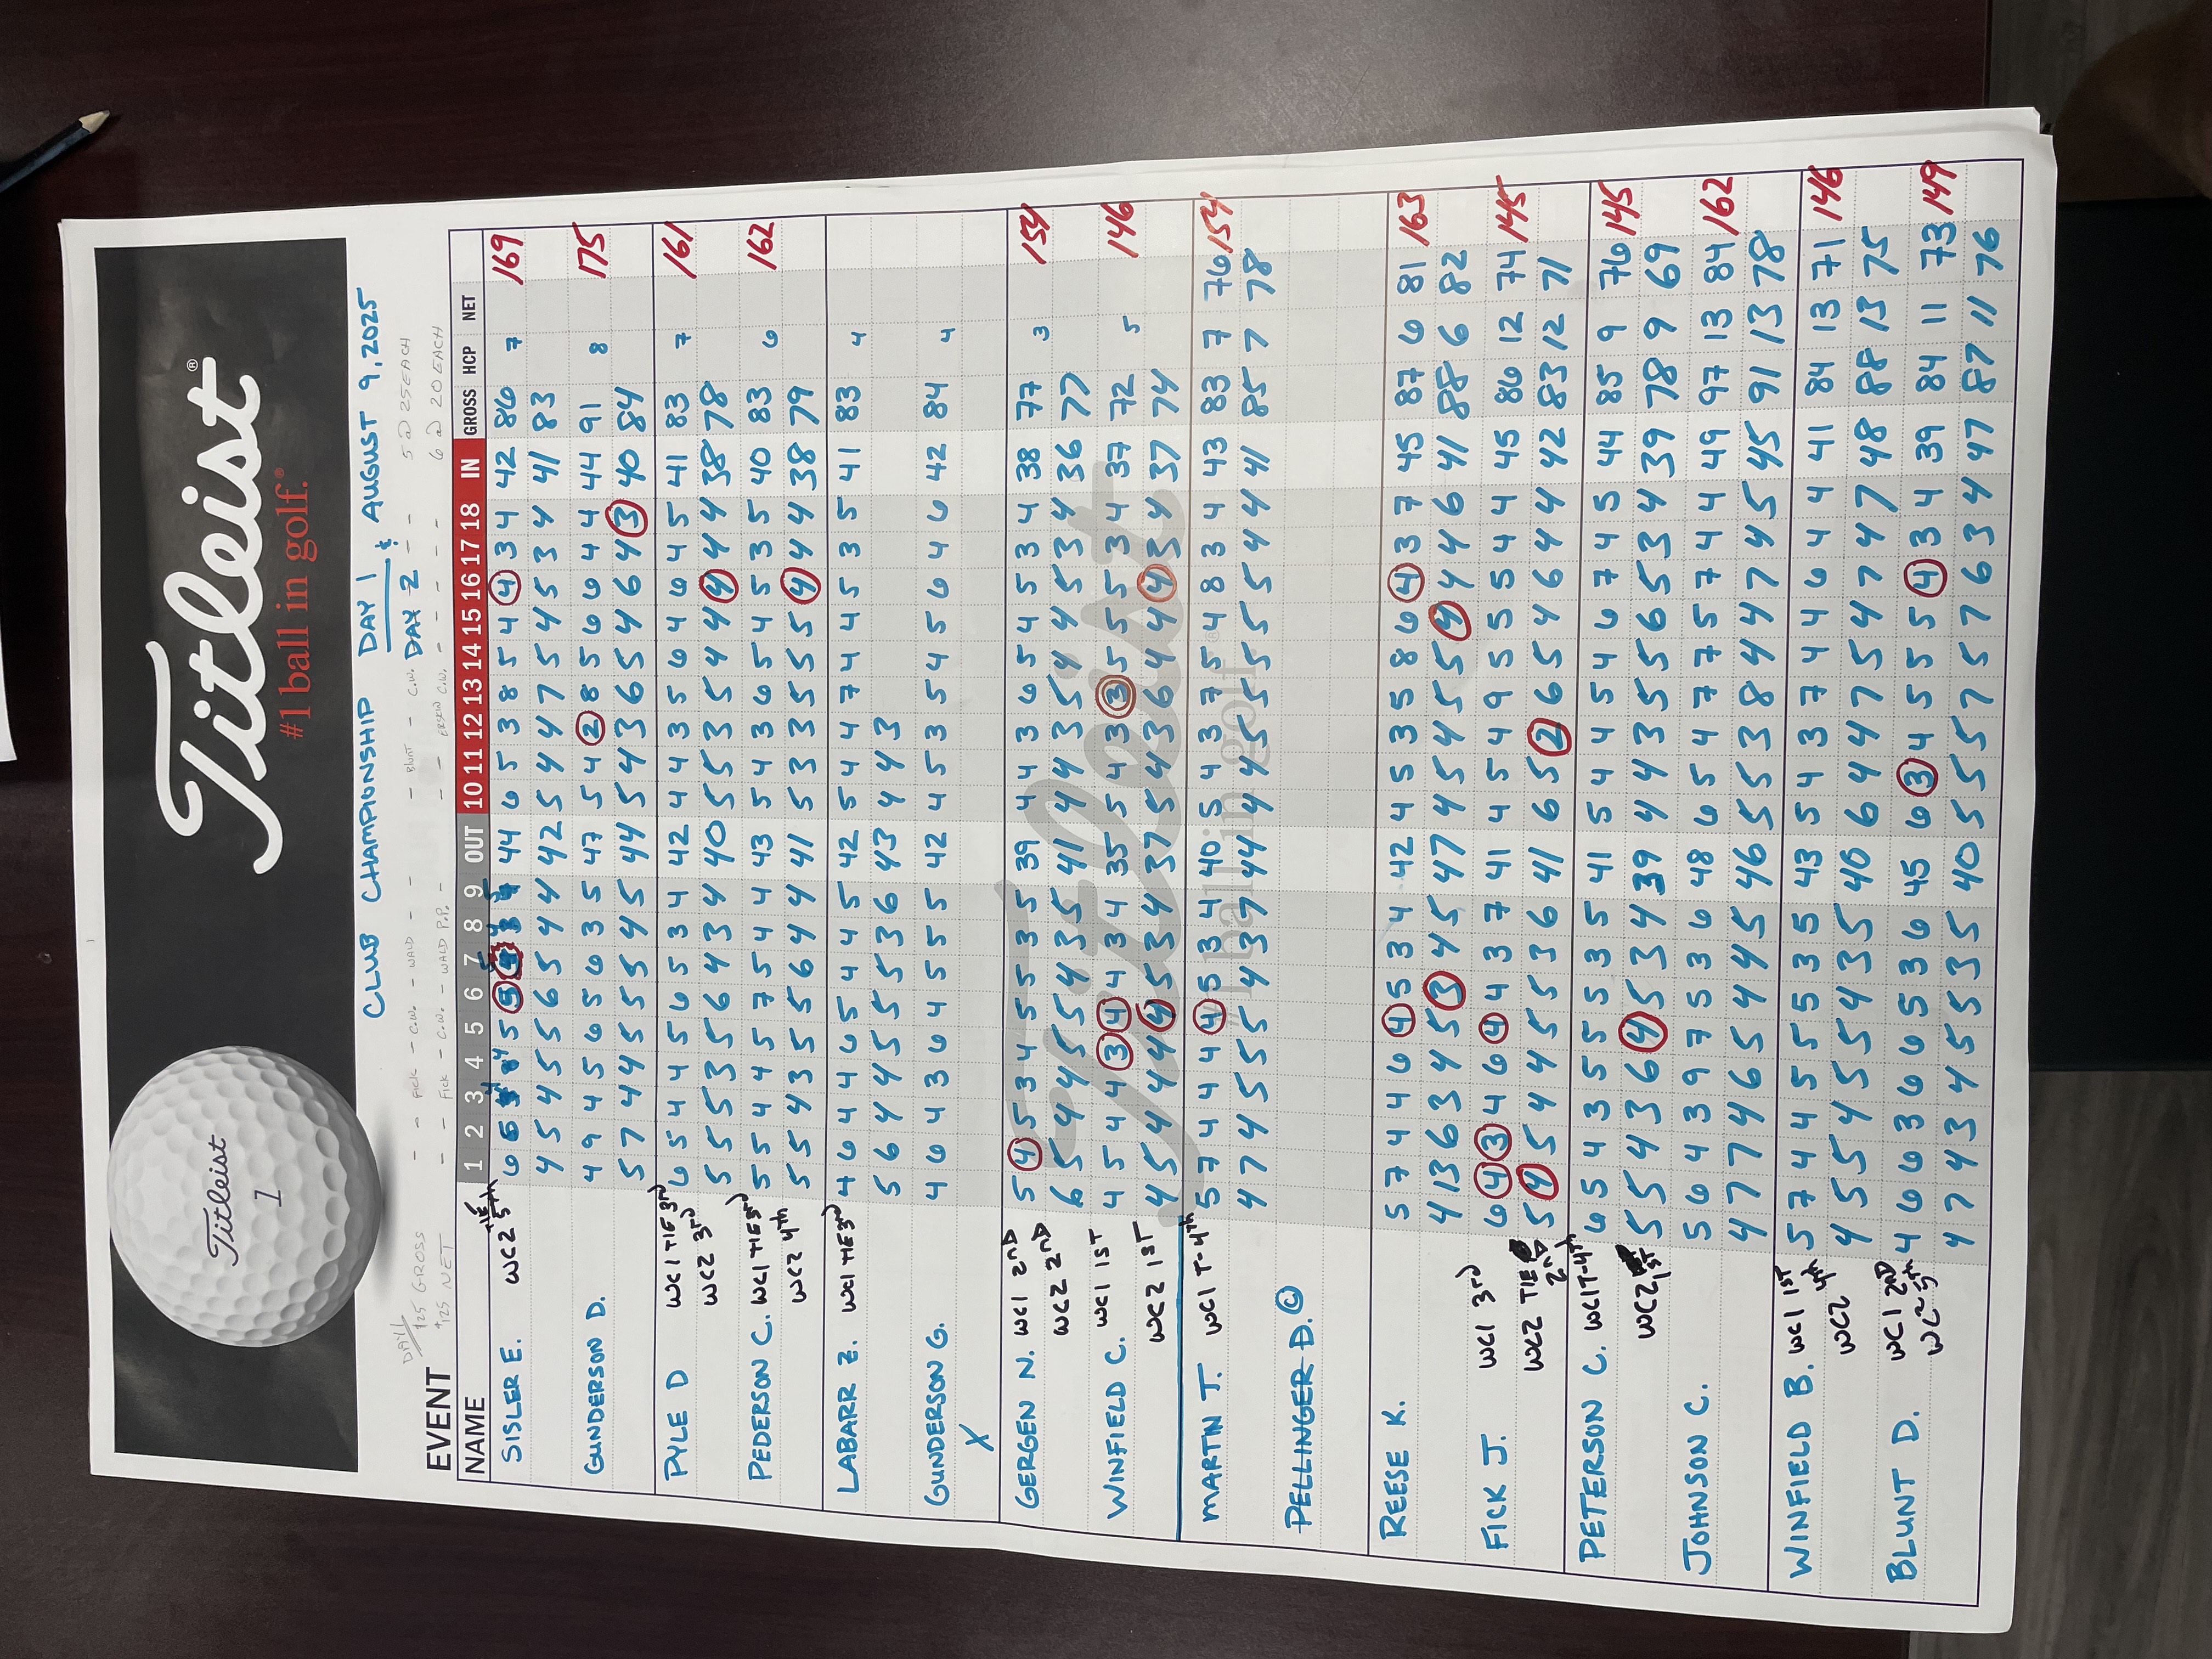 Titleist
1
Titleist®
#1 ball in golf.®
CLUB CHAMPIONSHIP DAY 1 & AUGUST 9, 2025
DAY 2
$25 GROSS - - FICK - C.W. - WALD - - BLUNT - C.W. - - 5 @ 25 EACH
$125 NET - - FICK - C.W. - WALD P.P. - - C.W. - - - 6 @ 20 EACH
EVENT
NAME 1 2 3 4 5 6 7 8 9 OUT 10 11 12 13 14 15 16 17 18 IN GROSS HCP NET
SISLER E. WC2 TIE 5th 6 5 5 44 6 5 3 8 5 4 4 3 4 42 86 7 169
4 5 4 5 5 6 5 4 4 42 5 4 4 7 5 4 5 3 4 41 83
GUNDERSON D. 4 9 4 5 6 5 6 3 5 47 5 4 2 8 5 6 6 4 4 44 91 8 175
5 7 4 4 5 5 5 4 5 44 5 4 3 6 5 4 6 4 3 40 84
PYLE D WC1 TIE 3rd 6 5 4 4 5 6 5 3 4 42 4 4 3 5 6 4 6 4 5 41 83 7 161
WC2 3rd 5 5 5 3 5 6 4 3 4 40 5 5 3 5 4 4 4 4 4 38 78
PEDERSON C. WC1 TIE 3rd 5 5 4 4 5 7 5 4 4 43 5 4 3 6 5 4 5 3 5 40 83 6 162
WC2 4th 5 5 4 3 5 5 6 4 4 41 5 3 3 5 5 5 4 4 4 38 79
LABARR Z. WC1 TIE 3rd 4 6 4 4 6 5 4 4 5 42 5 4 4 7 4 4 5 3 5 41 83 4
5 6 4 4 5 5 5 3 6 43 4 4 3
GUNDERSON G. 4 6 4 3 6 4 5 5 5 42 4 5 3 5 4 5 6 4 6 42 84 4
X
GERGEN N. WC1 2ND 5 4 5 3 4 5 5 3 5 39 4 4 3 6 5 4 5 3 4 38 77 3 154
WC2 2ND 6 5 4 4 5 5 4 3 5 41 4 4 3 5 4 4 5 3 4 36 77
WINFIELD C. WC1 1ST 4 5 4 4 3 4 4 3 4 35 5 4 3 3 5 5 5 3 4 37 72 5 146
WC2 1ST 4 5 4 4 4 4 5 3 4 37 5 4 3 6 4 4 4 3 4 37 74
MARTIN T. WC1 T-4th 5 7 4 4 4 4 5 3 4 40 5 4 3 7 5 4 8 3 4 43 83 7 76 154
4 7 4 5 5 5 4 3 7 44 4 4 5 5 5 5 5 4 4 41 85 7 78
PELLINGER D. ©
REESE K. 5 7 4 4 6 4 5 3 4 42 4 5 3 5 8 6 4 3 7 45 87 6 81 163
4 13 6 3 4 5 3 4 5 47 4 5 4 5 5 4 4 4 6 41 88 6 82
FICK J. WC1 3rd 6 4 3 4 6 4 4 3 7 41 4 5 4 9 5 5 5 4 4 45 86 12 74 145
WC2 TIE 2ND 5 4 5 4 4 5 5 3 6 41 6 5 2 6 5 4 6 4 4 42 83 12 71
PETERSON C. WC1 T-4th 6 5 4 3 5 5 5 3 5 41 5 4 4 5 4 6 7 4 5 44 85 9 76 145
WC2 1ST 5 5 4 3 6 4 5 3 4 39 4 4 3 5 5 6 5 3 4 39 78 9 69
JOHNSON C. 5 6 4 3 9 7 5 3 6 48 6 5 4 7 7 5 7 4 4 49 97 13 84 162
4 7 7 4 6 5 4 4 5 46 5 5 3 8 4 4 7 4 5 45 91 13 78
WINFIELD B. WC1 1ST 5 7 4 4 5 5 5 3 5 43 5 4 3 7 4 4 6 4 4 41 84 13 71 146
WC2 4th 4 5 5 4 5 5 4 3 5 40 6 4 4 7 5 4 7 4 7 48 88 13 75
BLUNT D. WC1 2ND 4 6 6 3 6 6 5 3 6 45 6 3 4 5 5 5 4 3 4 39 84 11 73 149
WC2 5th 4 7 4 3 4 5 5 3 5 40 5 5 5 7 5 7 6 3 4 47 87 11 76